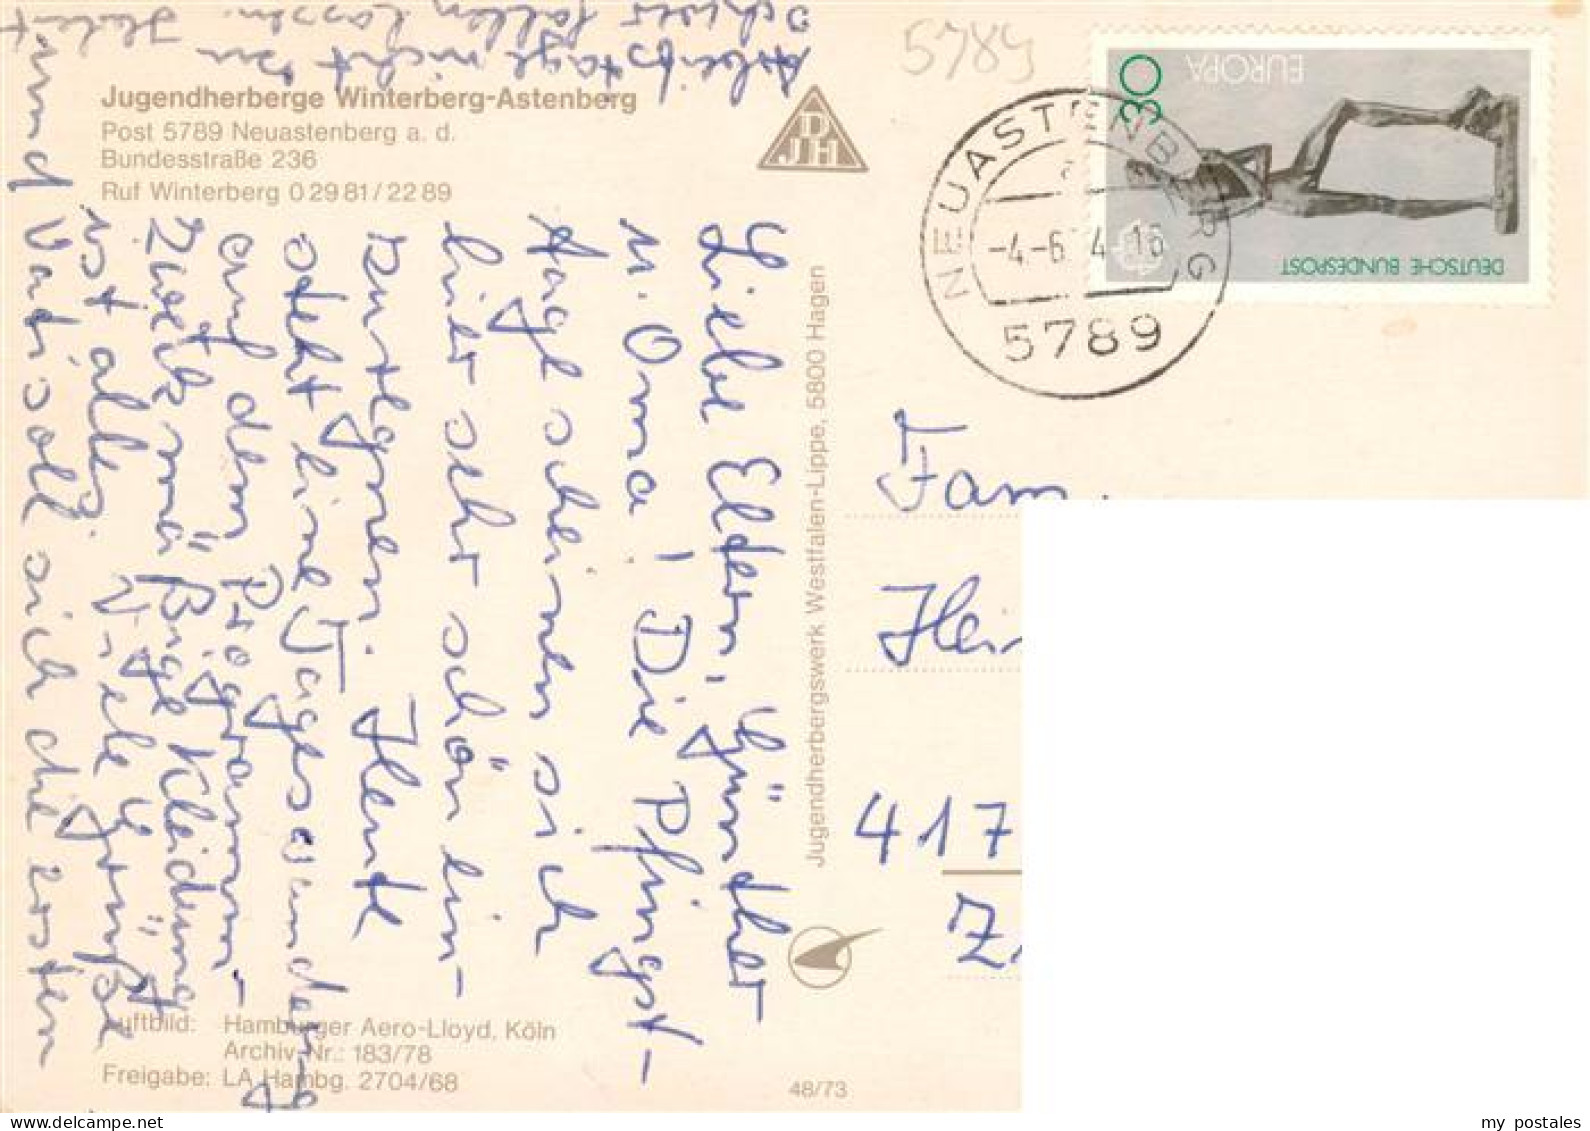 Jugendherberge Winterberg-Astenberg
Post 5789 Neuastenberg a. d.
Bundesstraße 236
Ruf Winterberg 0 29 81 / 22 89
DJH
5789
NEUASTENBERG
-4.-6. 74 16
5789
30
EUROPA
DEUTSCHE BUNDESPOST
Liebe Eltern, Günther
u. Oma! Die Pfingst-
tage scheinen sich
hier sehr schön ein-
zuregnen. Heute
steht eine Tageswanderung
auf dem Programm-
Zweckmäßige Kleidung
ist alles. Viele Grüße
und Vati soll sich die ersten
Arbeitstage nicht zu
schwer fallen lassen.
Jugendherbergswerk Westfalen-Lippe, 5800 Hagen
Fam.
Hei
417
Z
Luftbild: Hamburger Aero-Lloyd, Köln
Archiv-Nr.: 183/78
Freigabe: LA Hambg. 2704/68
48/73
my postales